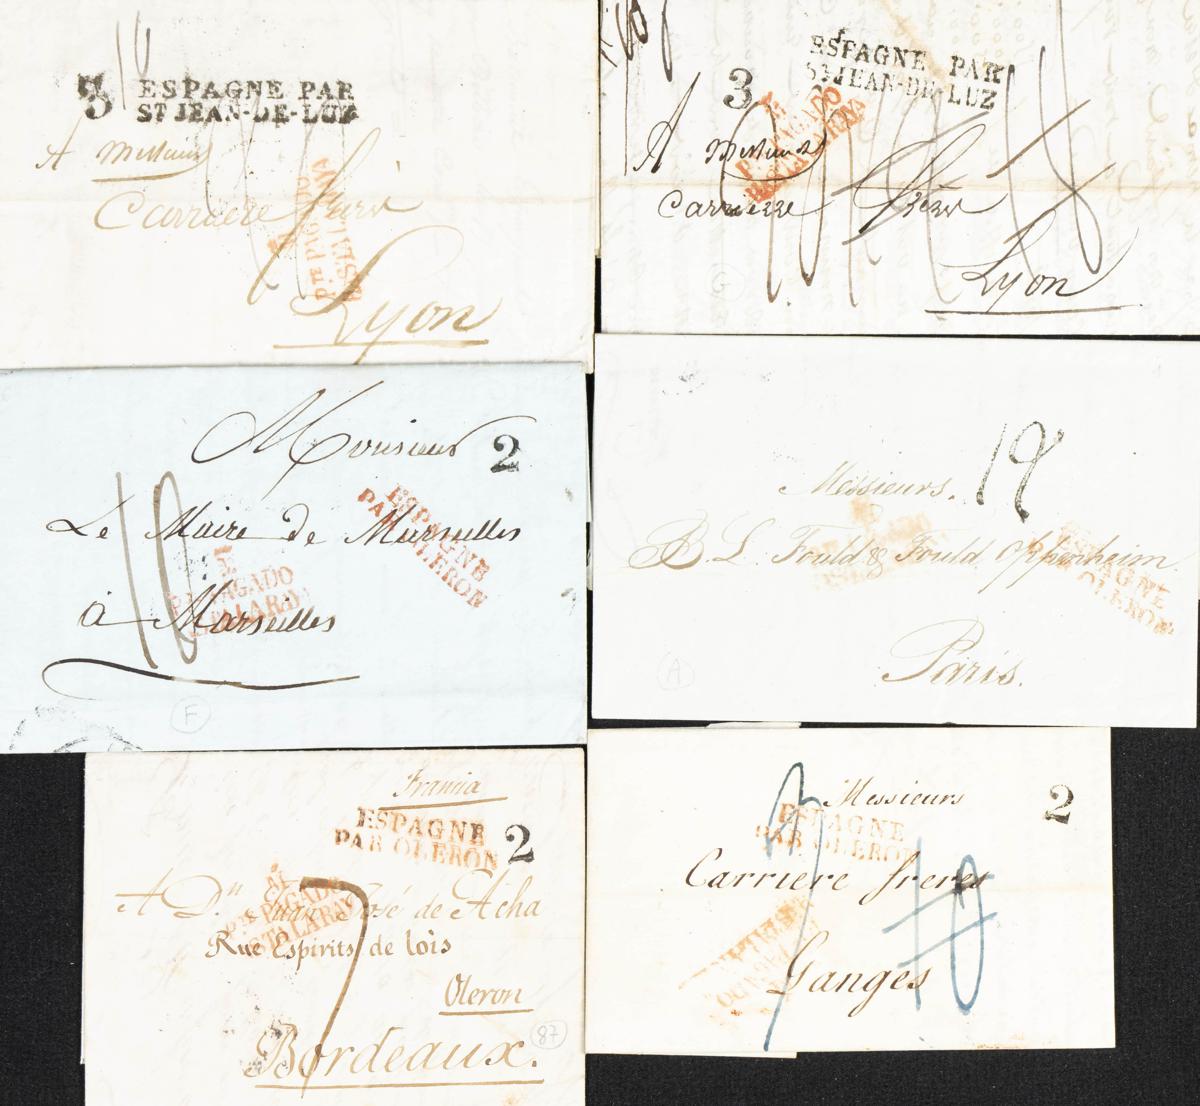 3 ESPAGNE PAR
ST JEAN-DE-LUZ
A Messieurs
Carriere frères
Lyon
3 ESPAGNE PAR
ST JEAN-DE-LUZ
PAGADO
A Messieurs
Carriere frères
Lyon
Monsieur 2
Le Maire de Marseilles
à Marseilles
ESPAGNE
PAR OLERON
PAGADO
10
F
19
Messieurs
B. L. Fould & Fould Oppenheim
Paris.
ESPAGNE
OLERON
A
Francia
ESPAGNE
PAR OLERON
2
A Dn Juan José de Acha
Rue Espirits de lois
Oleron
Bordeaux.
7
87
Messieurs
2
ESPAGNE
PAR OLERON
Carriere freres
Ganges
10